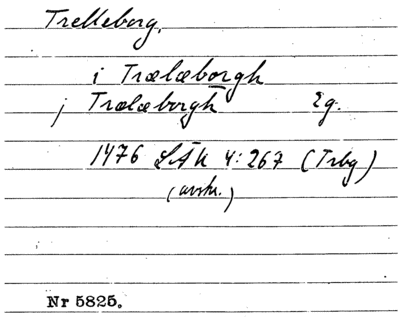 Trelleborg.
i Trælæborgh
j Trælæborgh Eg.
1476 LÄU 4:267 (Trbg)
(avskr.)
Nr 5825.